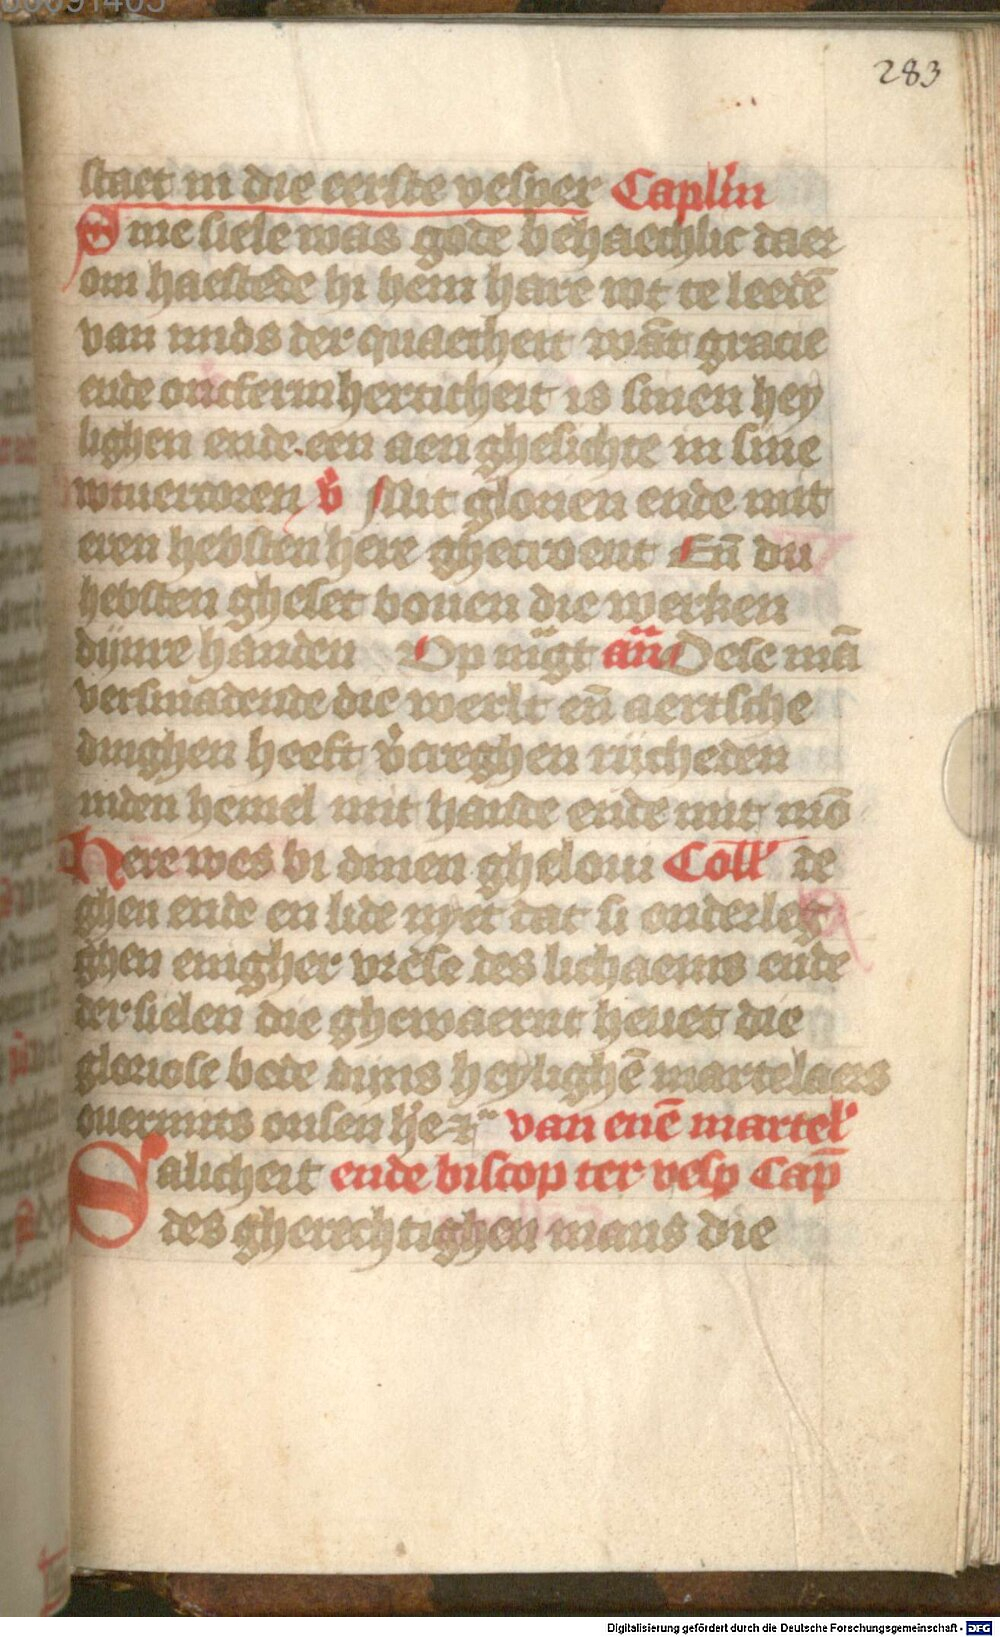 283
staet in die eerste vesper Caplm
Sine siele was gode behaechlic daer
om haestede hi hem hare wt te leedē
van mids der quaetheit wāt gracie
ende ontfermherticheit is sinen hey
lighen ende een aen ghesichte in sine
wtuercoren v̄ Mit glorien ende mit
eren hebsten here ghecroent Eñ du
hebsten gheset bouen die werken
dijnre handen Op m̄gt añ Dese mā
versmadende die werlt eñ aertsche
dinghen heeft v̄creghen rijcheden
inden hemel mit hande ende mit mō
Here wes bi dinen gheloui Coll' de
ghen ende en lide nyet dat si onderleg
ghen enigher vrese des lichaems ende
der sielen die ghewaernt heuet die
gloriose bede dijns heylighē martelaers
ouermits onsen he
van enē martel'
Salicheit ende biscop ter vesp Cap̄
des gherechtighen mans die
Digitalisierung gefördert durch die Deutsche Forschungsgemeinschaft - DFG